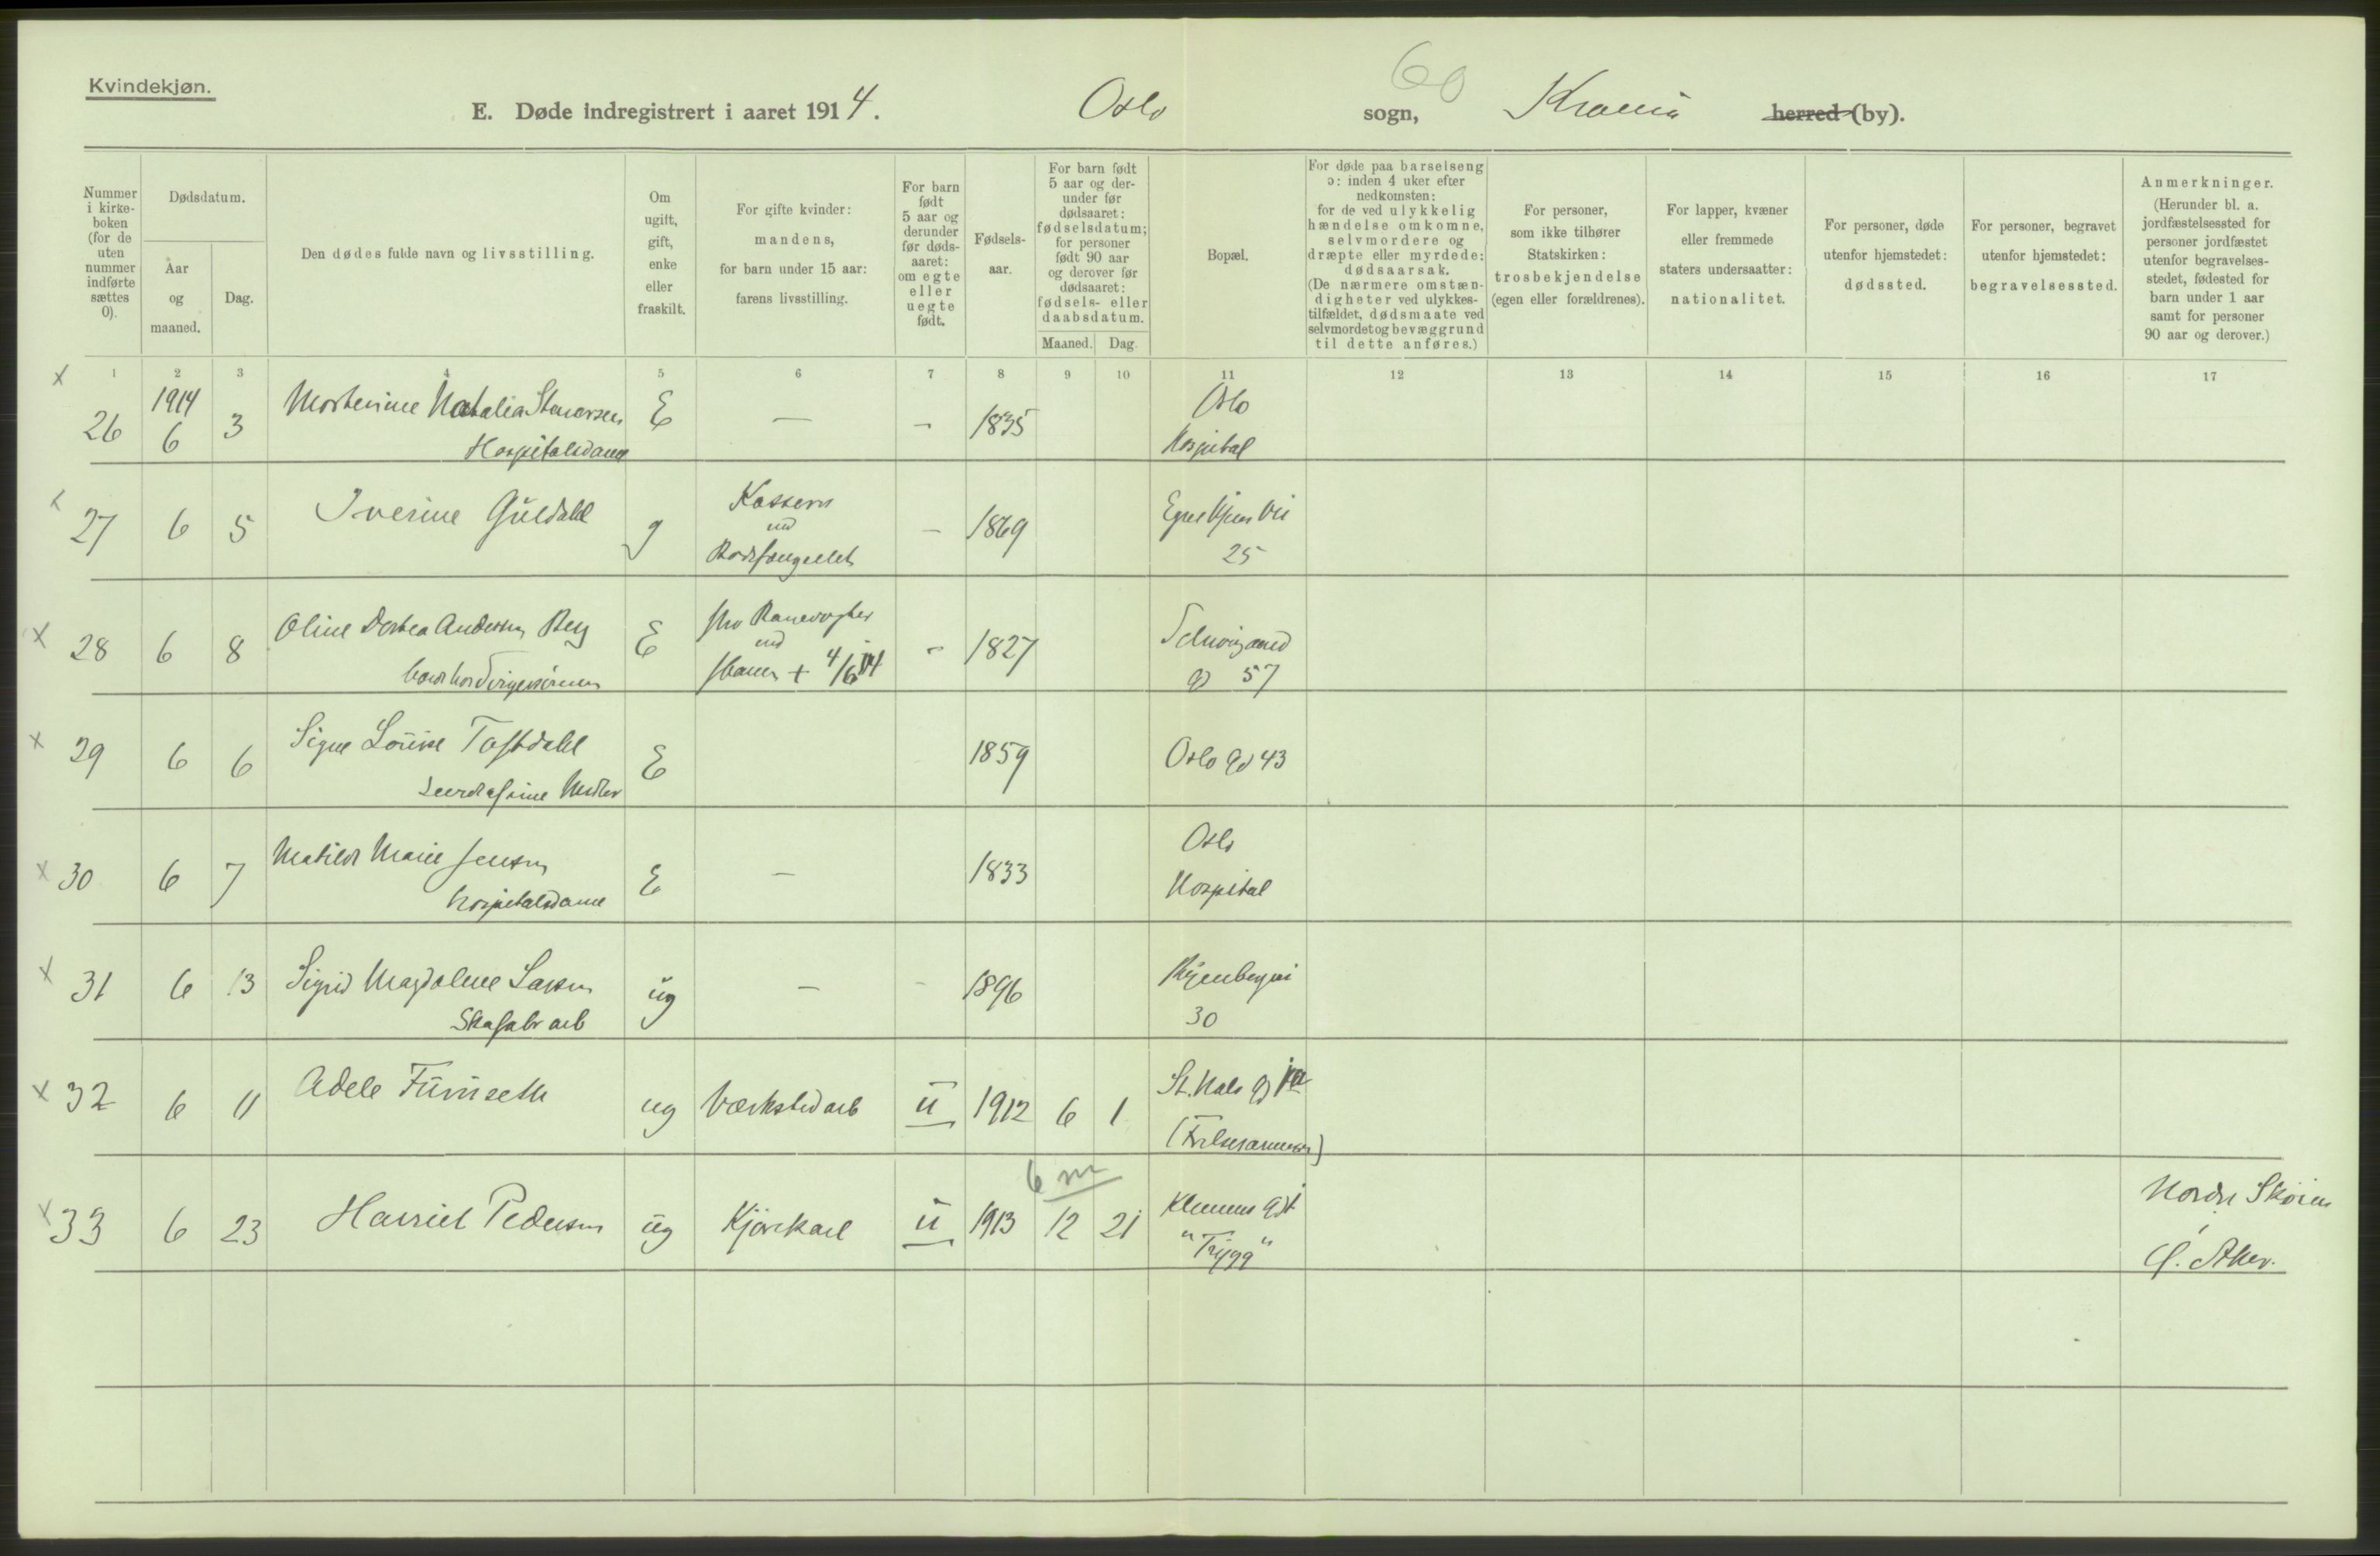 Kvindekjøn.
60
E. Døde indregistrert i aaret 1914. Oslo sogn, Krania herred (by).
Nummer i kirke-boken (for de uten nummer indførte sættes 0).
Dødsdatum.
Aar og maaned.
Dag.
Den dødes fulde navn og livsstilling.
Om ugift, gift, enke eller fraskilt.
For gifte kvinder: mandens, for barn under 15 aar: farens livsstilling.
For barn født 5 aar og derunder før døds-aaret: om egte eller uegte født.
Fødsels-aar.
For barn født 5 aar og der-under før dødsaaret: fødselsdatum; for personer født 90 aar og derover før dødsaaret: fødsels- eller daabsdatum.
Maaned. Dag.
Bopæl.
For døde paa barselseng ɔ: inden 4 uker efter nedkomsten: for de ved ulykkelig hændelse omkomne, selvmordere og dræpte eller myrdede: dødsaarsak. (De nærmere omstæn-digheter ved ulykkes-tilfældet, dødsmaate ved selvmordet og bevæggrund til dette anføres.)
For personer, som ikke tilhører Statskirken: trosbekjendelse (egen eller forældrenes).
For lapper, kvæner eller fremmede staters undersaatter: nationalitet.
For personer, døde utenfor hjemstedet: dødssted.
For personer, begravet utenfor hjemstedet: begravelsessted.
Anmerkninger. (Herunder bl. a. jordfæstelsessted for personer jordfæstet utenfor begravelses-stedet, fødested for barn under 1 aar samt for personer 90 aar og derover.)
1 2 3 4 5 6 7 8 9 10 11 12 13 14 15 16 17
x 26 1914 6 3 Mortenine Natalia Stenersen E — – 1835 Oslo
Hospitalsdame Hospital
27 6 5 Iverine Guldahl g Kasserer
ved
Bodsfængselet – 1869 Egnehjem vei
25
x 28 6 8 Oline Dortea Andersen Berg E
ved
+ 4/6 14 – 1827 Schweigaard
gd 57
x 29 6 6 Signe Louise Toftdahl E 1859 Oslo gd 43
x 30 6 7 Matilde Marie Jensen E — 1833 Oslo
hospitalsdame Hospital
x 31 6 13 Sigrid Magdalene Larsen ug — – 1896 Ryenbergvei
Skofabr arb 30
x 32 6 11 Adele Furuseth ug Værksted arb u 1912 6 1 St. Hals gd
(Frelsesarmeen)
6 m
x 33 6 23 Harriet Pedersen ug Kjørekarl u 1913 12 21 Klemens gd
"Trygg"
Nordre Skøien
Ø. Aker.